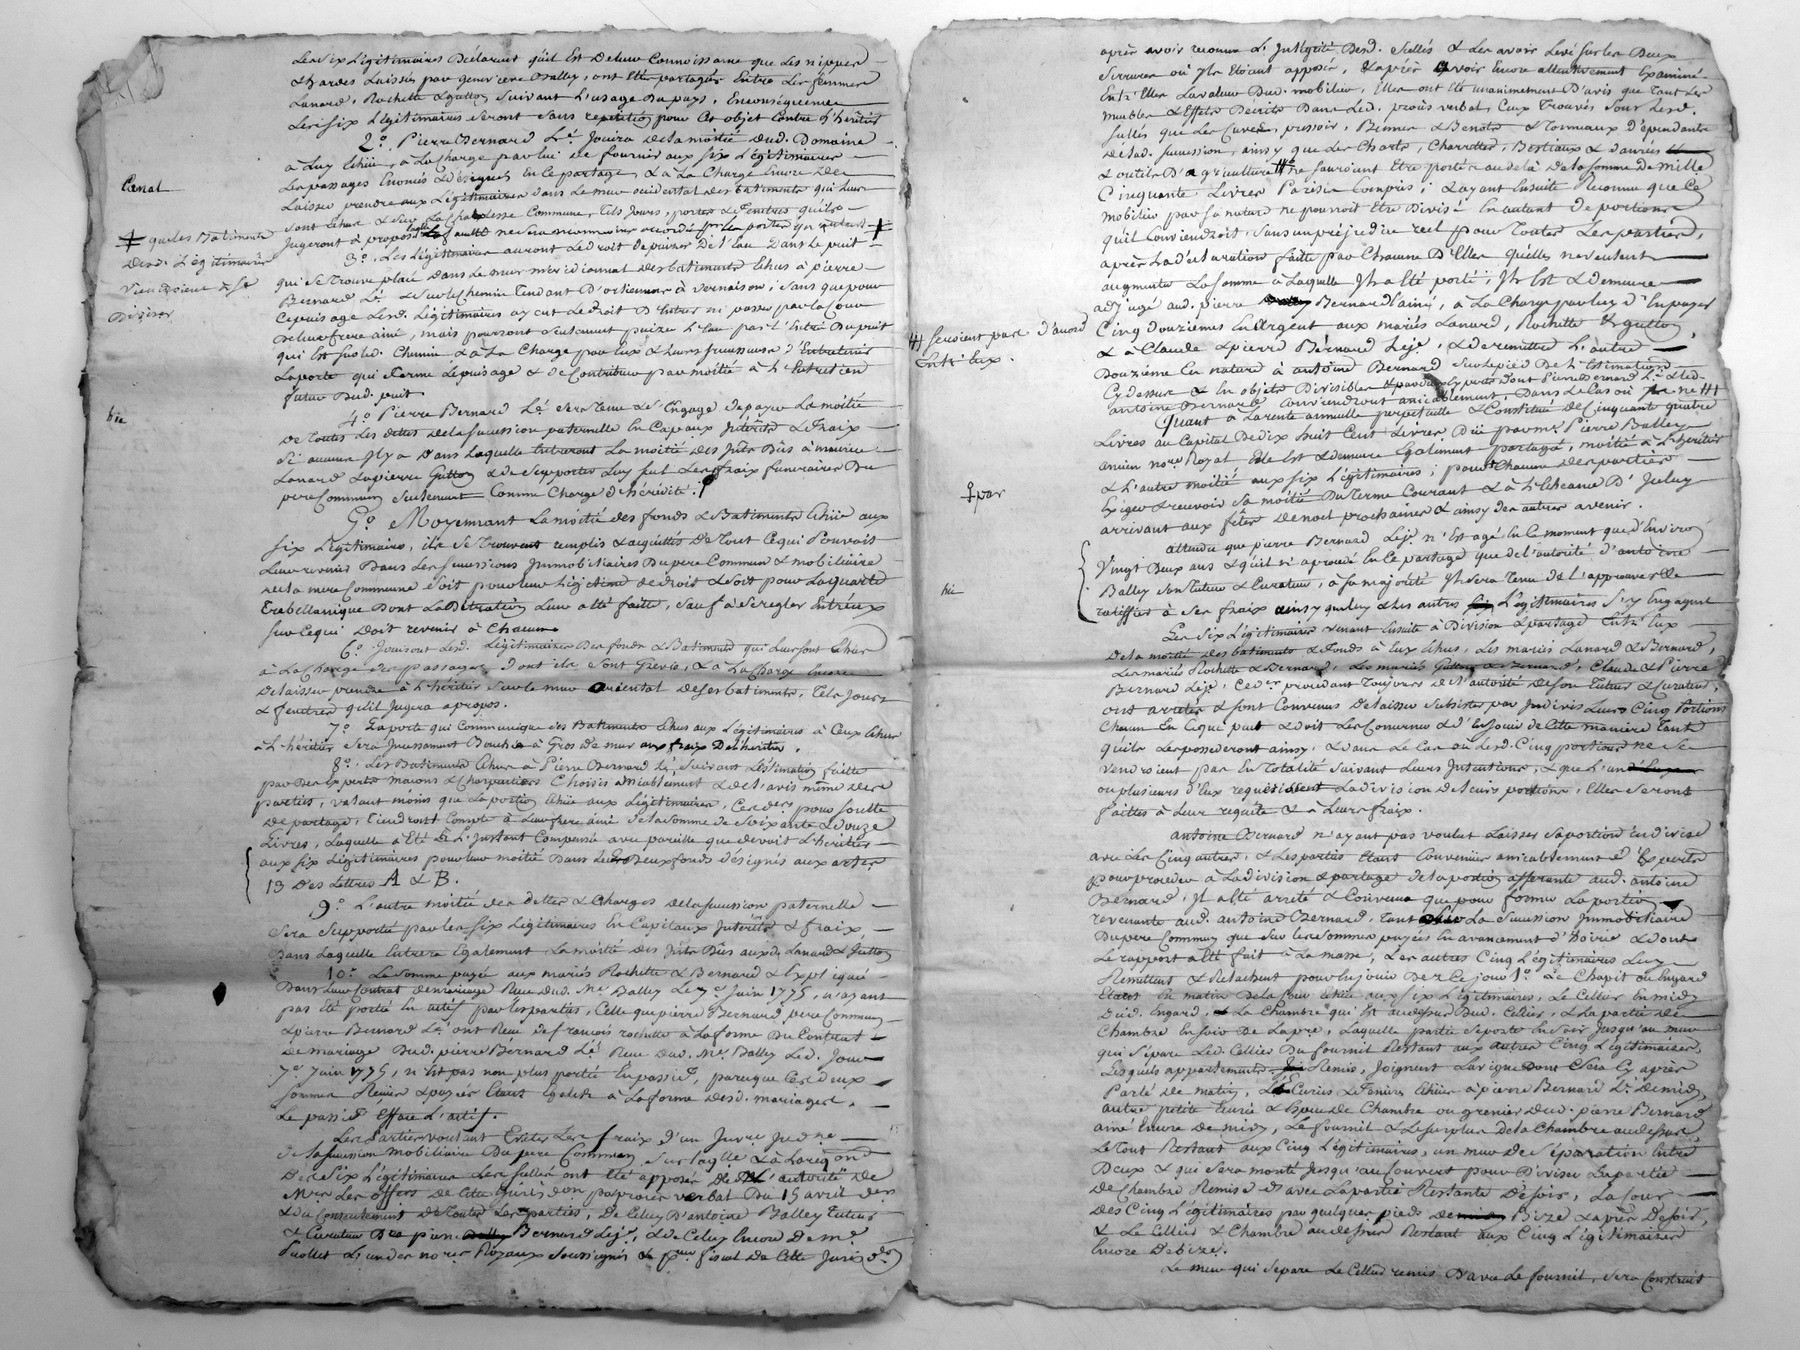 Les Six Légitimaires Déclarant qu'il Est De leur Connoissance que Les nippes
& hardes Laissées par genevieve Balley, ont Eté partagés Entre Les femmes
Lanard, Rochette & gutton Suivant L'usage Du pays, En conséquence
Les six Légitimaires Seront Sans repetition pour Cet objet Contre L'heritier
2.° Pierre Bernard L.é Jouira De la moitié dud. Domaine
à Luy Echüe, à La Charge par lui de fournir aux six Légitimaires
Les passages Enoncés & désignés En Ce partage, & à La Charge Encore De
Laisser prendre aux Légitimaires dans Le mur occidental des batiments qui Leur
Sont Echus & Sur La Commune, tels Jours, portes & fenetres qu'ils
Jugeront à propos
3.° Les Légitimaires auront Le droit de puiser De L'Eau Dans Le puit
qui Se Trouve placé dans Le mur méridional des batiments Echus à pierre
Bernard L.é & Sur Le Chemin Tendant D'orlienas à vernaison, Sans que pour
Ce puisage Lesd. Légitimaires ayent Le droit D'Entrer ni passer par La Cour
de Leur frere ainé, mais pourront Seulement puiser L'Eau par L'Entrée Du puit
qui Est Sur led. Chemin & à La Charge par Eux & Leurs successeurs d'Entretenir
La porte qui ferme Le puisage & de Contribuer par moitié à L'Entretien
futur Dud. puit
4.° Pierre Bernard L.é Sera Tenu & S'Engage de payer La moitié
De Toutes Les dettes de la succession paternelle En Capaux Intérêts & fraix
Si aucuns Il y a Dans Laquelle Entreront La moitié Des Intérêts Dûs à
Lanard & à pierre Gutton & de Supporter Luy seul Les fraix funeraires Du
pere Commun Seulement Comme Charge d'hérédité.
5.° Moyennant La moitié des fonds & Batiments Echüe aux
Six Légitimaires, ils Se Trouvent remplis & acquittés De Tout Ce qui Pouvait
Leur revenir Dans Les Successions Immobiliaires Du pere Commun & mobiliaire
de la mere Commune Soit pour Leur Légitime de droit & Soit pour La quarte
Trebellianique Dont La Leur a été faite, Sauf à Se regler Entr'eux
Sur Ce qui Doit revenir à Chacun
6.° Jouiront Lesd. Légitimaires Des fonds & Batiments qui Leur Sont Echus
à La Charge des passages Dont ils Sont Grevés, & à La Charge Encore
De laisser prendre à L'héritier Sur le mur oriental de ses batiments, Tels Jours
& fenetres qu'il Jugera apropos.
7.° La porte qui Communique des Batiments Echus aux Légitimaires à Ceux Echus
à L'héritier Sera Incessament Bouchée à Gros De mur aux fraix De L'heritier.
8.° Les Batiments Echus à Pierre Bernard L.é Suivant L'Estimation faitte
par Des Experts macons & Charpentiers Choisis amiablement & de L'avis même des
parties, valant moins que La portion Echüe aux Légitimaires, Ces der.s pour soulte
De partage, Tiendront Compte à Leur frere ainé de la Somme de Soixante & douze
Livres, Laquelle a été à L'Instant Compensée avec pareille que devoit L'heritier
aux six Légitimaires pour Leur moitié Dans Les Deux fonds désignés aux articles
13 Des Lettres A & B.
9.° L'autre moitié des dettes & Charges de la Succession paternelle
Sera Supportée par les Six Légitimaires En Capitaux Intérêts & fraix,
Dans Laquelle Entrera Egalement La moitié Des Intérêts Dûs auxd. Lanard & Gutton
10.° La Somme payée aux mariés Rochette & Bernard & Expliquée
Dans Leur Contrat de mariage Recu Dud. M.e Balley Le 7.e Juin 1775, n'ayant
pas Eté portée En actif par Les parties, Celle que pierre Bernard pere Commun
& pierre Bernard L.é ont Recu de francois rochette à La forme Du Contrat
De mariage Dud. pierre Bernard L.é Recu Dud. M.e Balley Led. Jour
7.e Juin 1775, n'Est pas non plus portée En passif, parceque Ces deux
Sommes Recües & payées Etant Egales à La forme Desd. mariages,
Le passif Efface L'actif.
Les Parties voulant Eviter Les fraix d'un Inv.re Jud.re
de la Succession Mobiliaire Du pere Commun Sur laq.lle & à La req.on
Des Six Légitimaires Les Scellés ont été apposés De L'autorité De
M.rs Les offers De Cette Jurisd.on par procès verbal Du 15 avril der.
& du Consentement De Toutes Les parties, De Celuy D'antoine Balley Tuteur
& Curateur De pierre Bernard Lejé, & De Celuy Encore De M.e
L'un des no.res Royaux Soussignés & p.reur fiscal De Cette Jurisd.on
Canal
‡ que Les Batiments
Desd. Légitimaires
Viendroient à Se
Diviser
hic
après avoir reconnu L'Intégrité Desd. Scellés & Les avoir Levé Sur Les Deux
Serrures où Ils Etoient apposés, & après avoir Encore attentivement Examiné
Entr'Elles La valeur Dud. mobilier, Elles ont Eté unanimement D'avis que Tous Les
meubles & Effets Décrits Dans Led. procès verbal, Ceux Trouvés Sous Lesd.
Scellés que Les Cuves, pressoir, Bennes & Benots & Tonneaux D'épendants
De lad. Succession, ainsy que Les Chars, Charrettes, Bestiaux & danrées
& outils D'agriculture ne Sauroient Etre portés au delà De la Somme De mille
Cinquante Livres Parisis Compris; & ayant Ensuite Reconnu que Ce
mobilier par Sa nature ne pourroit Etre Divisé En autant De portions
qu'il Conviendroit, Sans un préjudice réel pour Toutes Les parties,
après La déclaration faitte par Chacune D'Elles qu'elles ne veulent
augmenter La Somme à Laquelle Il a Eté porté; Il Est & Demeure
adjugé aud. pierre Bernard L'ainé, à La Charge par luy D'En payer
Cinq Douziemes En Argent aux mariés Lanard, Rochette & gutton,
& à Claude & pierre Bernard Lejé, & de remettre L'autre
Douzieme En nature à antoine Bernard Sur Le pied De L'Estimation
Cy dessus & En objets Divisibles & par Experts Dont Pierre Bernard L.é & Led.
antoine Bernard Conviendront amiablement, Dans Le Cas où ne
Quant à La rente annuelle perpetuelle & Constituée De Cinquante quatre
Livres au Capital De dix huit Cent Livres Düe par M.e Pierre Balley
ancien no.re Royal Elle Est & demeure Egalement partagée, moitié à L'heritier
& L'autre moitié aux six Légitimaires; pour Chacune Des parties
Exiger & recevoir Sa moitié Du Terme Courant & à L'Echeance D'
arrivant aux fêtes De noël prochaines & ainsy des autres avenir.
Attendu que pierre Bernard Lejé n'Est agé En Ce moment que D'Environ
Vingt Deux ans & qu'il n'a procedé En Ce partage que De L'autorité d'antoine
Balley Son Tuteur & Curateur, à Sa majorité Il Sera Tenu de L'approuver &
ratiffier à Ses fraix ainsy que Luy & Les autres Légitimaires S'y Engagent
Les Six Légitimaires venant Ensuite à Division & partage Entr'Eux
De la moitié des batiments & fonds à Eux Echus, Les mariés Lanard & Bernard,
Les mariés Rochette & Bernard, Les mariés Gutton & Bernard, Claude & Pierre
Bernard Lejé, Ce der. procedant Toujours De L'autorité de Son Tuteur & Curateur,
ont arrêté & Sont Convenus De laisser Subsister par Indivis Leurs Cinq Portions
Chacun En Ce qui peut & doit Les Concerner & d'En Jouir de Cette maniere Tant
qu'ils Les possederont ainsy, & dans Le Cas où Lesd. Cinq portions ne Se
vendroient pas En Totalité Suivant Leurs Intentions, & que L'un
ou plusieurs d'Eux requerissent La division De Leurs portions, Elles Seront
faittes à Leur requête & à Leurs fraix.
Antoine Bernard n'ayant pas voulut Laisser Sa portion Indivise
avec Les Cinq autres, & Les parties Etant Convenües amicablement D'Experts
pour proceder à La division & partage de la portion afferante aud. antoine
Bernard, Il a Eté arrêté & Convenu que pour former La portion
revenante aud. antoine Bernard, Tant Sur La Succession Immobiliaire
Du pere Commun que Sur Les Sommes payées En avancement d'hoirie & dont
Le rapport a Eté fait à La masse, Les autres Cinq Légitimaires Luy
Remettent & Relachent pour En Jouir Dez Ce Jour 1.° Le Chapit ou Engard
Etant En matin De la Cour Echüe aux Six Légitimaires, Le Cellier En midy
Dud. Engard, & La Chambre qui Est au dessus Dud. Cellier, & La partie De
Chambre En Soir De La pre, Laquelle partie Se porte En Soir Jusqu'au mur
qui Sépare Led. Cellier Du fournil Restant aux autres Cinq Légitimaires,
Lesquels appartements Remis, Joignent La vigne Dont Sera Cy après
Parlé De matin, Les Ecuries & fenieres Echües à pierre Bernard L.é De midy,
autre petite Ecurie & Chambre ou grenier Dud. pierre Bernard
ainé Encore De midy, Le fournil & Le Surplus De la Chambre au dessus
Le Tout Restant aux Cinq Légitimaires, un mur De Séparation Entre
Deux & qui Sera monté Jusqu'au Couvert pour Diviser La partie
De Chambre Remise d'avec La partie Restante De Soir, La Cour
Des Cinq Légitimaires par quelques pieds De Bize & après De Soir,
& Le Cellier & Chambre au dessus Restant aux Cinq Légitimaires
Encore De bize.
Le mur qui Sépare Le Cellier remis D'avec Le fournil, Sera Construit
Seroient pas d'accord
Entr'Eux.
par
hic